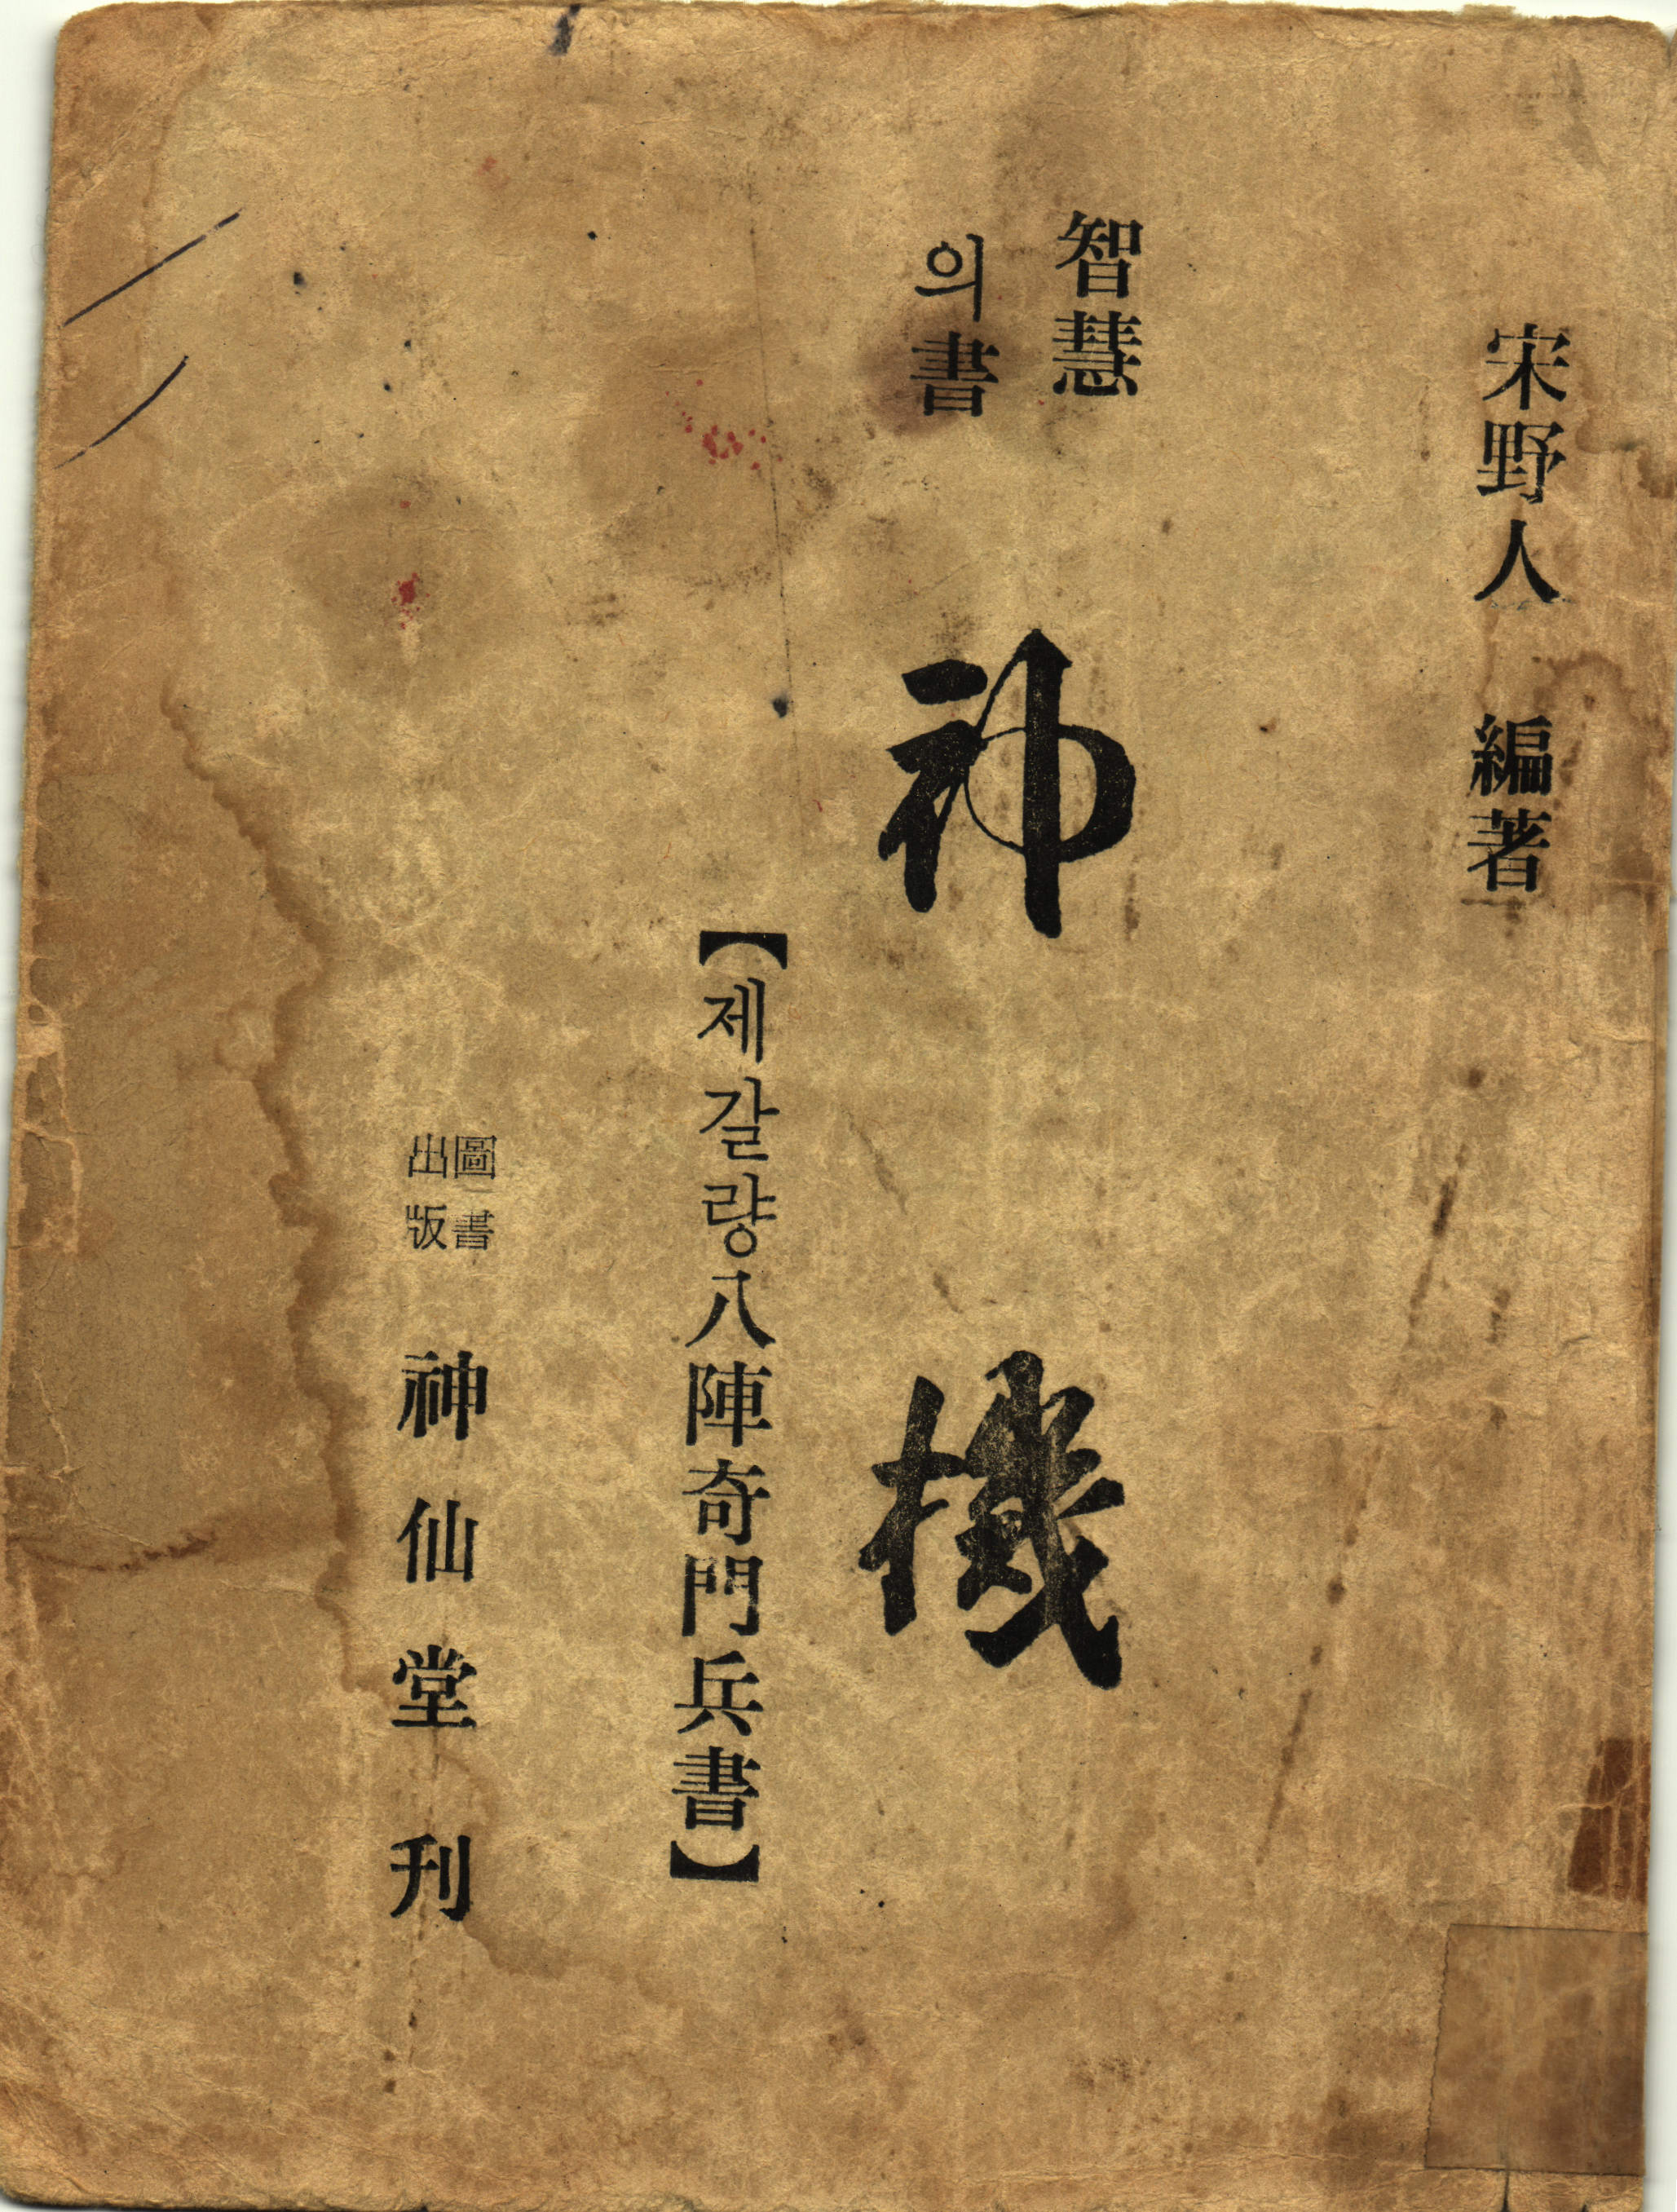 宋野人 編著
智慧
의書
神機
【제갈량八陣奇門兵書】
圖書
出版
神仙堂刊